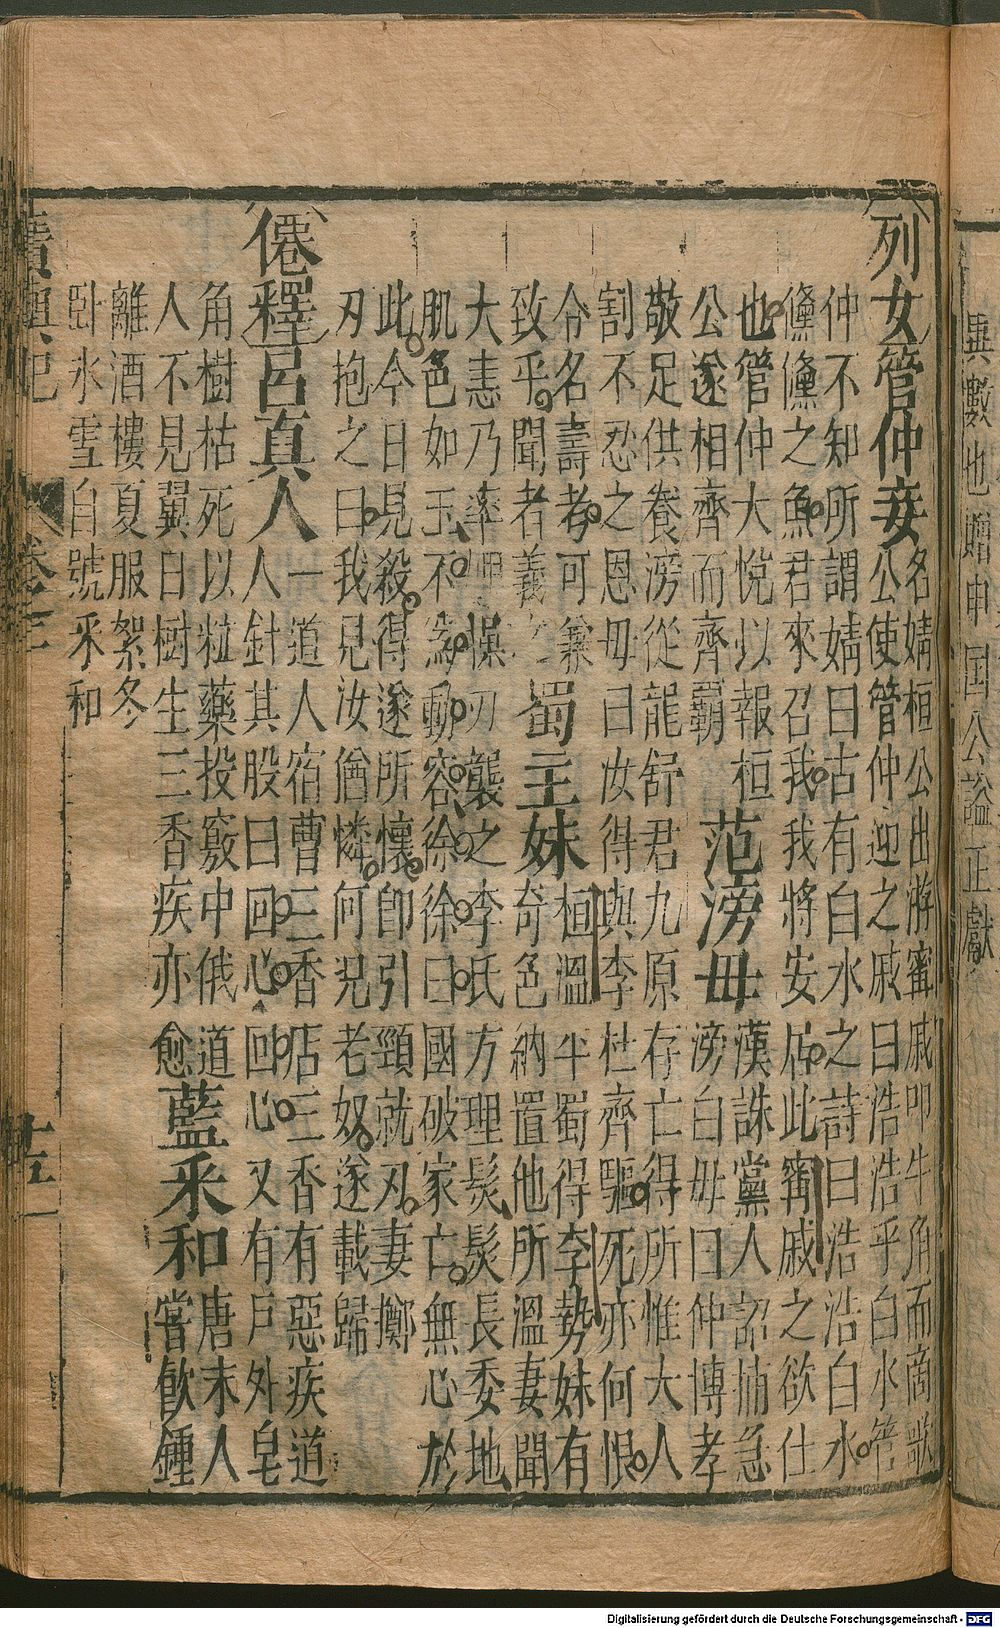 異數也贈申国公謚正獻
列女
管仲妾
名婧桓公出游甯戚叩牛角而商歌
公使管仲迎之戚曰浩浩乎白水管
仲不知所謂婧曰古有白水之詩曰浩浩白水
儵儵之魚君來召我我將安居此甯戚之欲仕
也管仲大悅以報桓
公遂相齊而齊霸
范滂母
漢誅黨人詔捕急
滂白母曰仲博孝
敬足供養滂從龍舒君九原存亡得所惟大人
割不忍之恩母曰汝得與李杜齊驅死亦何恨
令名壽考可兼
致乎聞者義
蜀主妹
桓溫平蜀得李勢妹有
奇色納置他所溫妻聞
大恚乃率刃襲之李氏方理髮髮長委地
肌色如玉不為動容徐徐曰國破家亡無心於
此今日見殺得遂所懷卽引頸就刃妻擲
刃抱之曰我見汝猶憐何况老奴遂載歸
僊釋
呂真人
一道人宿曹三香店三香有惡疾道
人針其股曰回心回心又有戶外皂
角樹枯死以粒藥投竅中俄道
人不見翼日樹生三香疾亦愈
藍采和
唐末人
嘗飲鍾
離酒樓夏服絮冬
臥氷雪自號采和
廣輿記 卷三 十五
Digitalisierung gefördert durch die Deutsche Forschungsgemeinschaft - DFG